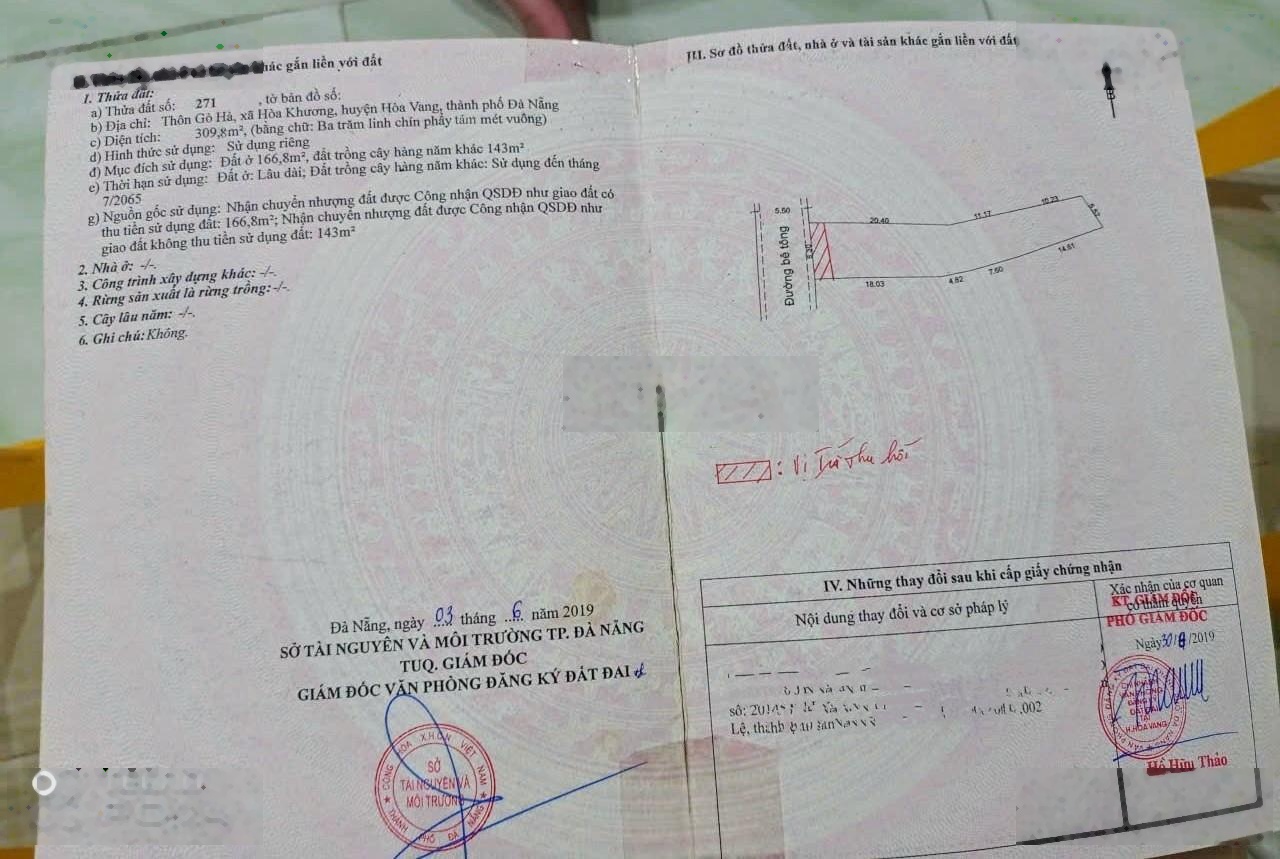 khác gắn liền với đất
1. Thửa đất:
a) Thửa đất số: 271 , tờ bản đồ số:
b) Địa chỉ: Thôn Gò Hà, xã Hòa Khương, huyện Hòa Vang, thành phố Đà Nẵng
c) Diện tích: 309,8m², (bằng chữ: Ba trăm linh chín phẩy tám mét vuông)
d) Hình thức sử dụng: Sử dụng riêng
đ) Mục đích sử dụng: Đất ở 166,8m², đất trồng cây hàng năm khác 143m²
e) Thời hạn sử dụng: Đất ở: Lâu dài; Đất trồng cây hàng năm khác: Sử dụng đến tháng
7/2065
g) Nguồn gốc sử dụng: Nhận chuyển nhượng đất được Công nhận QSDĐ như giao đất có
thu tiền sử dụng đất: 166,8m²; Nhận chuyển nhượng đất được Công nhận QSDĐ như
giao đất không thu tiền sử dụng đất: 143m²
2. Nhà ở: -/-.
3. Công trình xây dựng khác: -/-.
4. Rừng sản xuất là rừng trồng: -/-.
5. Cây lâu năm: -/-.
6. Ghi chú: Không.
Đà Nẵng, ngày 03 tháng 6 năm 2019
SỞ TÀI NGUYÊN VÀ MÔI TRƯỜNG TP. ĐÀ NẴNG
TUQ. GIÁM ĐỐC
GIÁM ĐỐC VĂN PHÒNG ĐĂNG KÝ ĐẤT ĐAI
CỘNG HÒA X.H.C.N VIỆT NAM
SỞ
TÀI NGUYÊN VÀ
MÔI TRƯỜNG
THÀNH PHỐ ĐÀ NẴNG
III. Sơ đồ thửa đất, nhà ở và tài sản khác gắn liền với đất
B
5.50
20.40
11.17
10.23
Đường bê tông
18.03
4.82
7.60
14.51
: Vị Trí thu hồi
IV. Những thay đổi sau khi cấp giấy chứng nhận
Nội dung thay đổi và cơ sở pháp lý
Xác nhận của cơ quan
có thẩm quyền
KT. GIÁM ĐỐC
PHÓ GIÁM ĐỐC
Ngày 30/8/2019
số:
002
Lệ,
H.HÒA VANG
Hồ Hữu Thảo